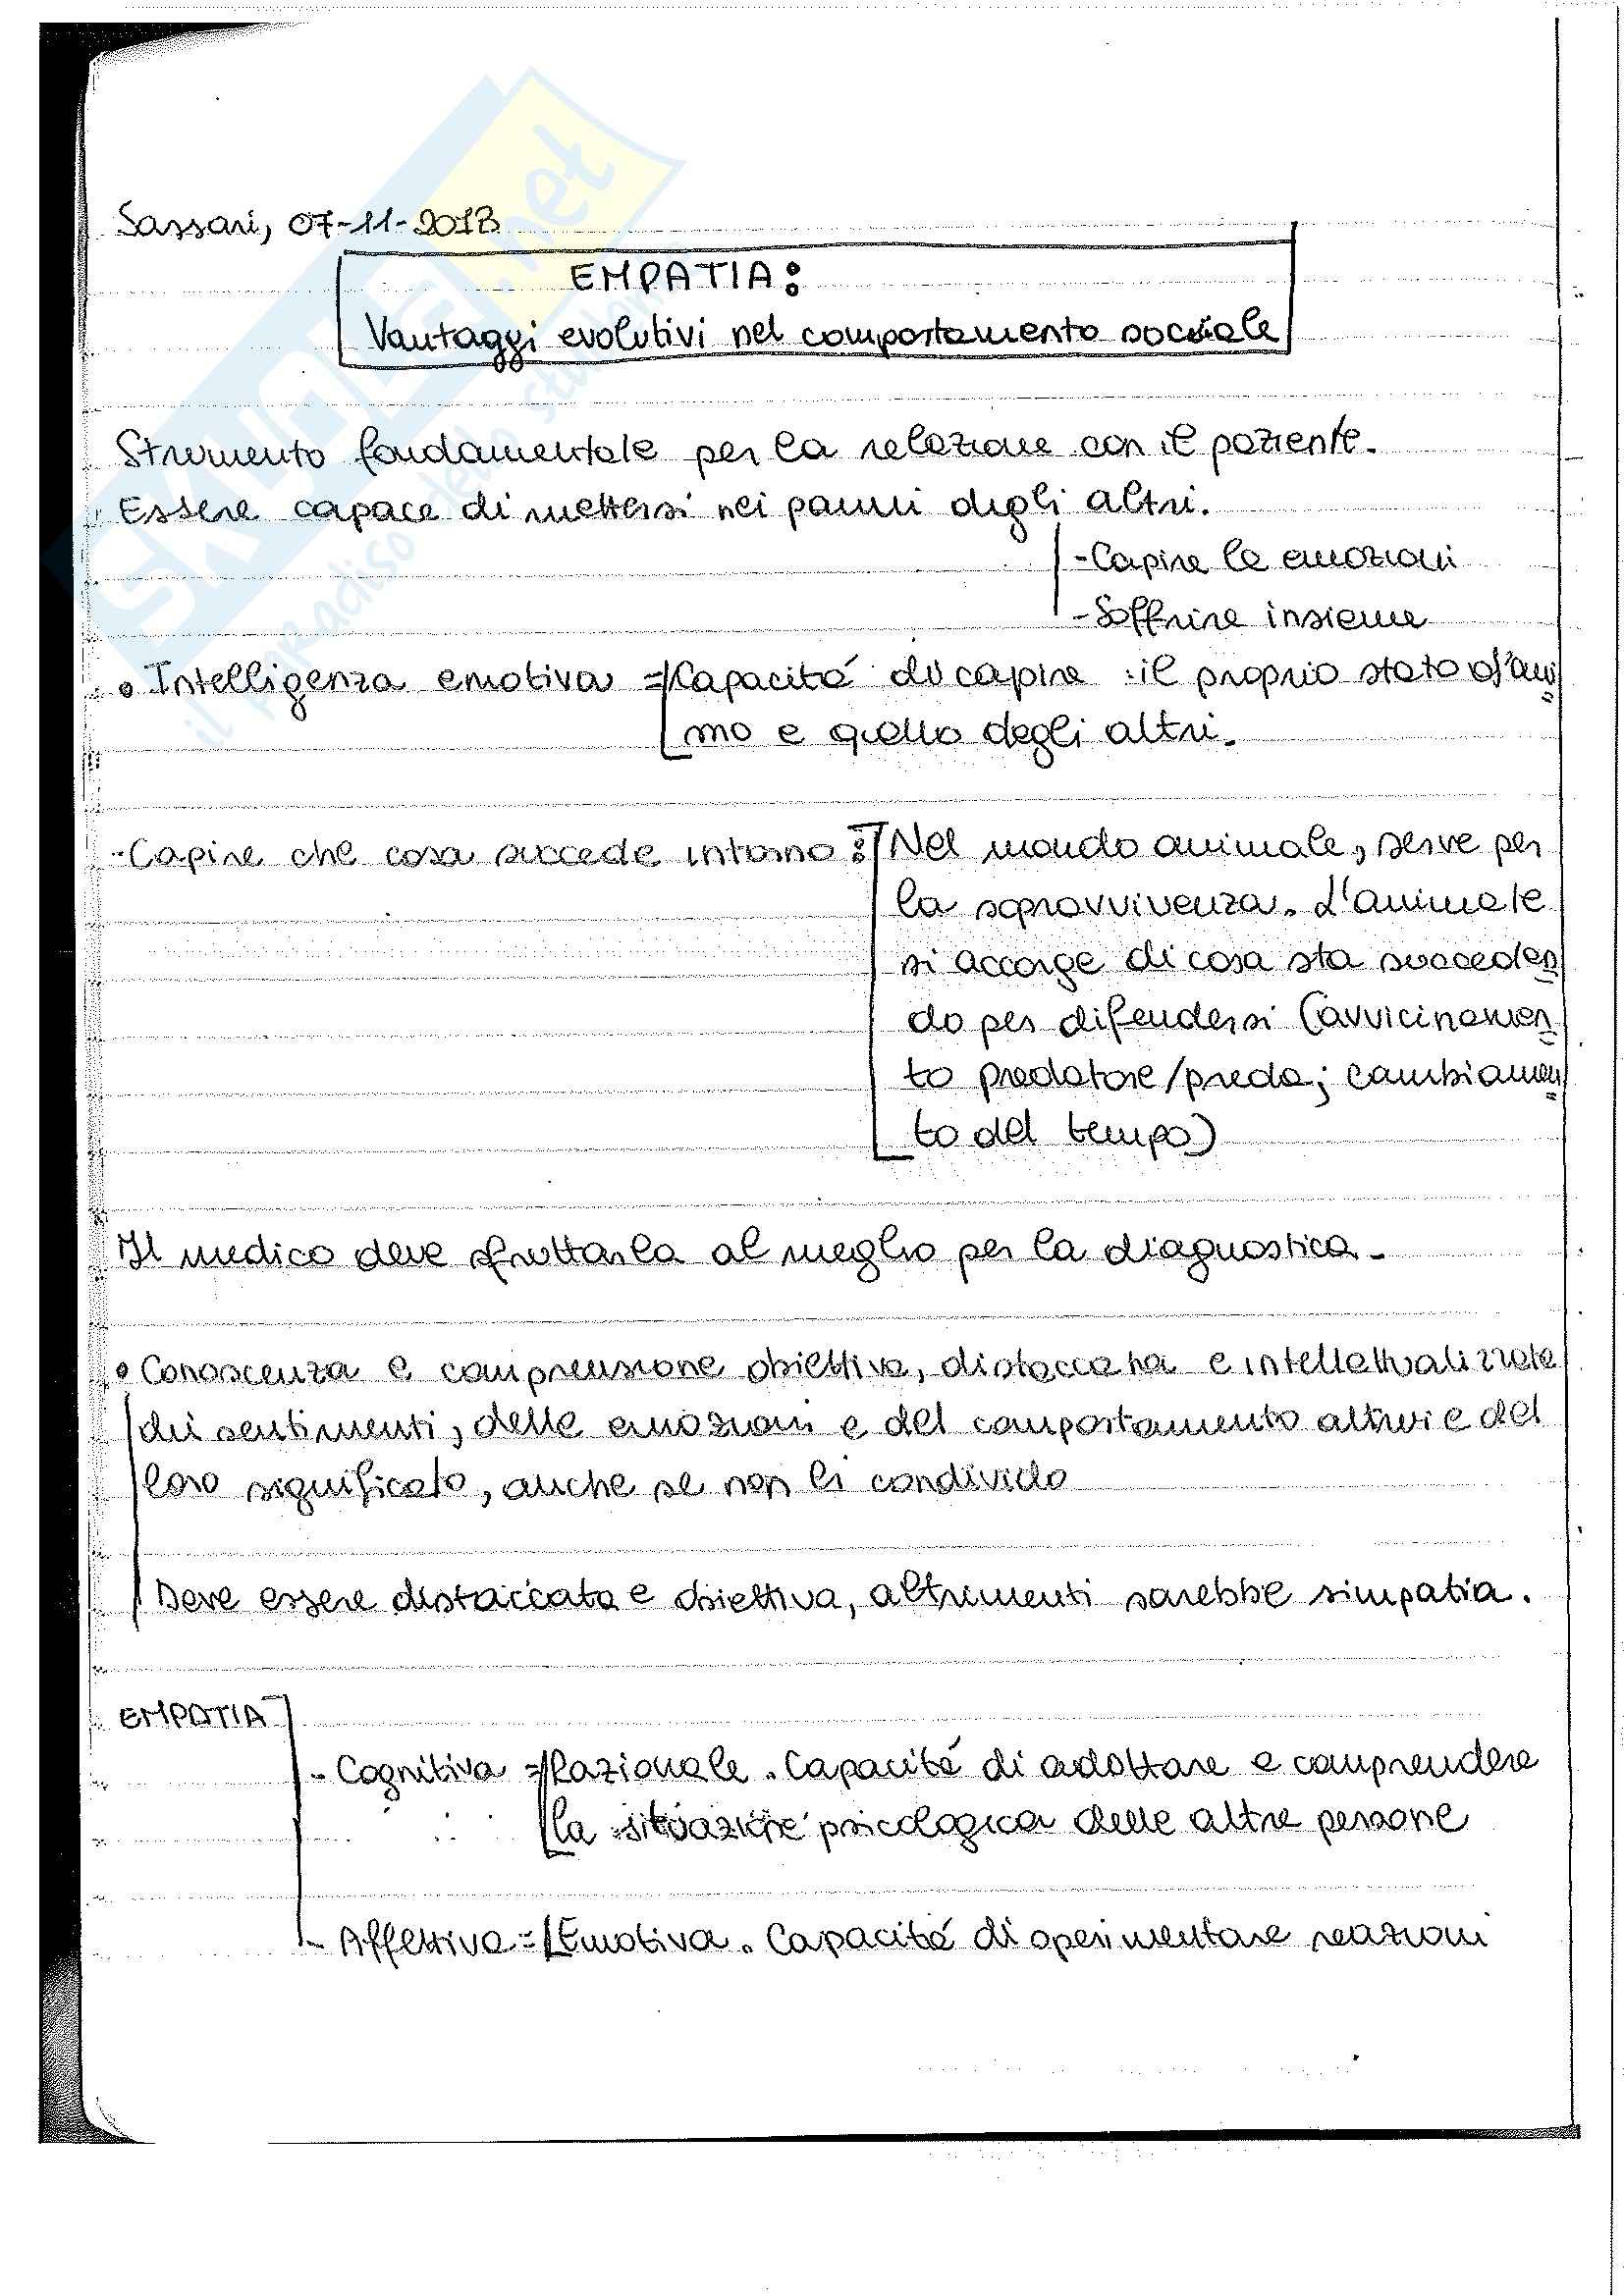 Sassari, 07-11-2013
EMPATIA:
Vantaggi evolutivi nel comportamento sociale
Strumento fondamentale per la relazione con il paziente.
Essere capace di mettersi nei panni degli altri.
- Capire le emozioni
- Soffrire insieme
• Intelligenza emotiva = Capacitá di capire il proprio stato d'ani
mo e quello degli altri.
- Capire che cosa succede intorno: Nel mondo animale, serve per
la sopravvivenza. L'animale
si accorge di cosa sta succeden
do per difendersi (avvicinamen
to predatore/preda; cambiamen
to del tempo)
Il medico deve sfruttarla al meglio per la diagnostica.
• Conoscenza e comprensione obiettiva, distaccata e intellettualizzata
dei sentimenti, delle emozioni e del comportamento altrui e del
loro significato, anche se non li condivido
Deve essere distaccata e obiettiva, altrimenti sarebbe simpatia.
EMPATIA
- Cognitiva = Razionale. Capacitá di adottare e comprendere
la situazione psicologica delle altre persone
- Affettiva = Emotiva. Capacitá di sperimentare reazioni
SKUOLA.net
il paradiso dello studente